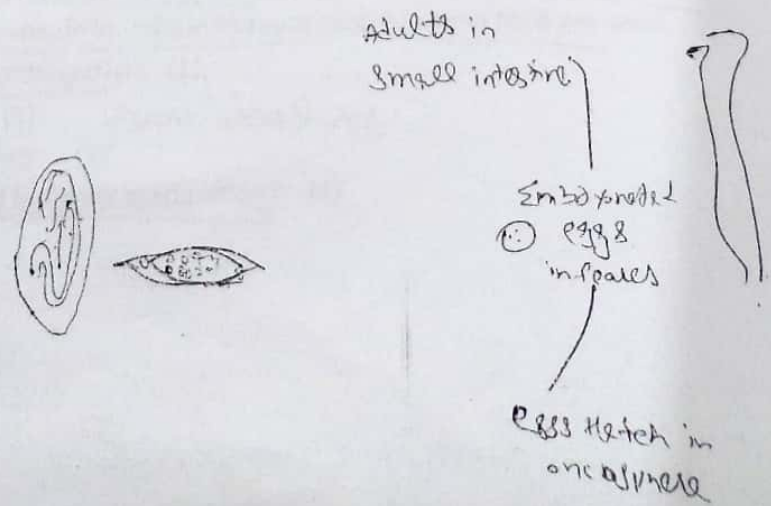 Adults in
small intestine
Embryonated
eggs
in feaces
eggs Hatch in
oncosphere